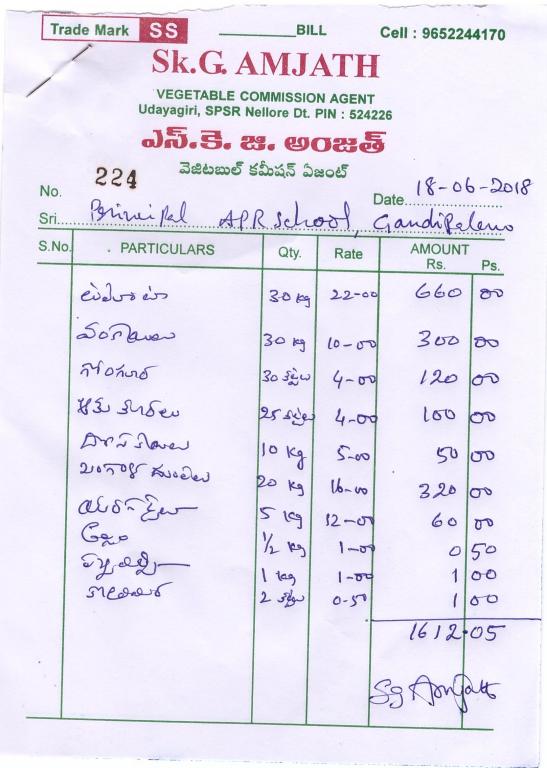 Trade Mark SS
BILL
Cell : 9652244170
Sk.G. AMJATH
VEGETABLE COMMISSION AGENT
Udayagiri, SPSR Nellore Dt. PIN : 524226
ఎస్.కె. జి. అంజత్
వెజిటబుల్ కమీషన్ ఏజంట్
No. 224 Date 18-06-2018
Sri. APR School,
S.No. PARTICULARS Qty. Rate AMOUNT
Rs. Ps.
30 kg 22-00 660 00
వంకాయలు 30 kg 10-00 300 00
గోంగూర 30 కట్టలు 4-00 120 00
ఆకు కూరలు 25 కట్టలు 4-00 100 00
దోసకాయలు 10 kg 5-00 50 00
బంగాళ దుంపలు 20 kg 16-00 320 00
5 kg 12-00 60 00
అల్లం 1/2 kg 1-00 0 50
1 kg 1-00 1 00
2 కట్టలు 0-50 1 00
1612.05
Sg Amjath